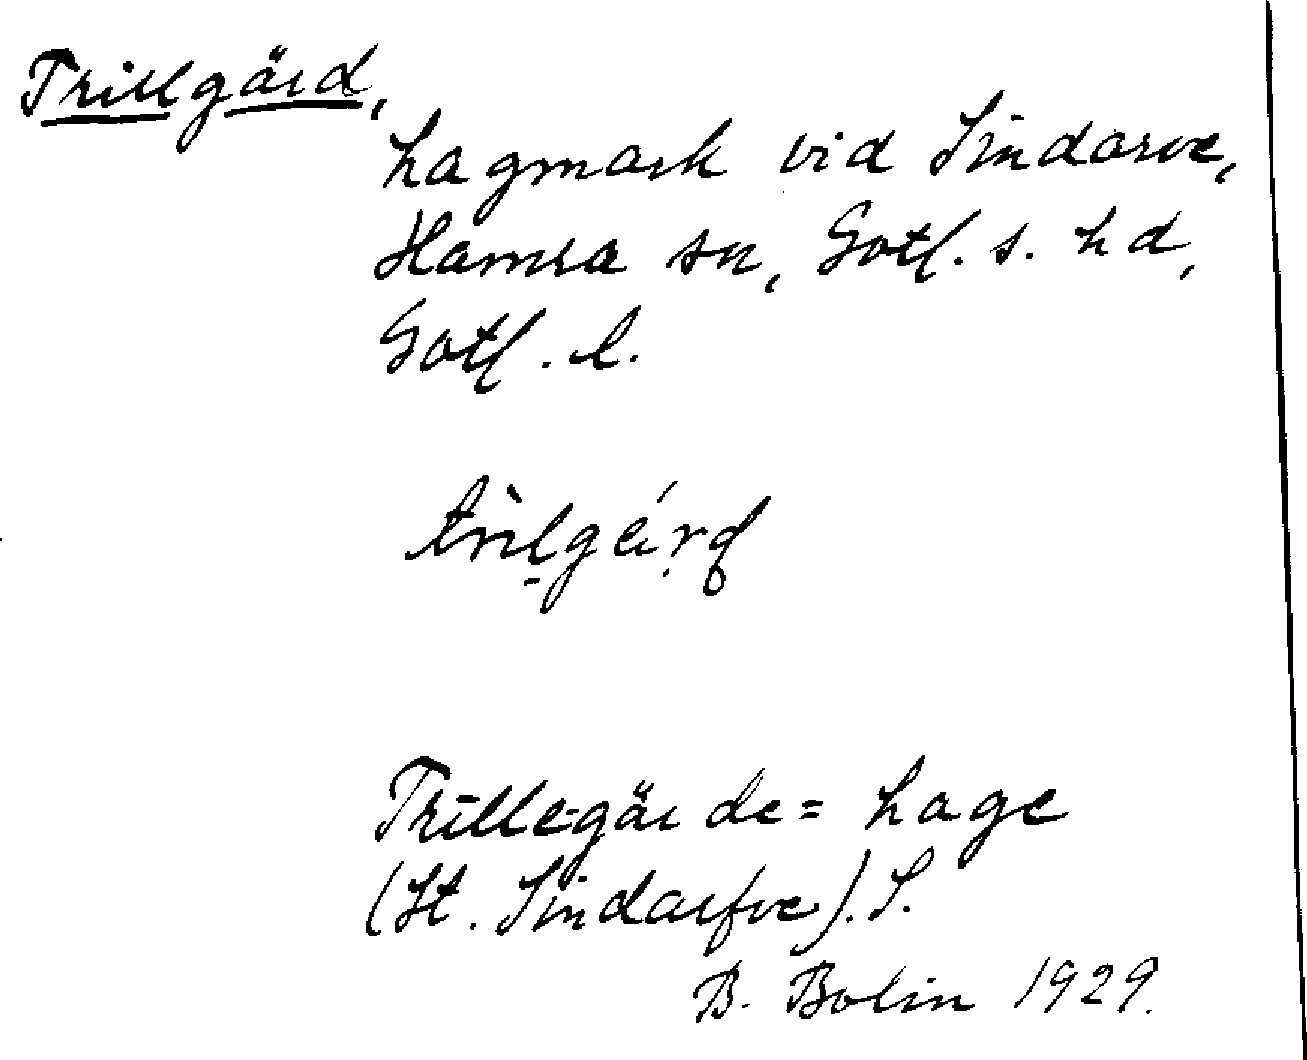 Trillgärd,
hagmark vid Sindarve,
Hamra sn, Gotl. s. hd,
Gotl. l.
Trille-gärde = hage
(St. Sindarfve). S.
B. Bolin 1929.